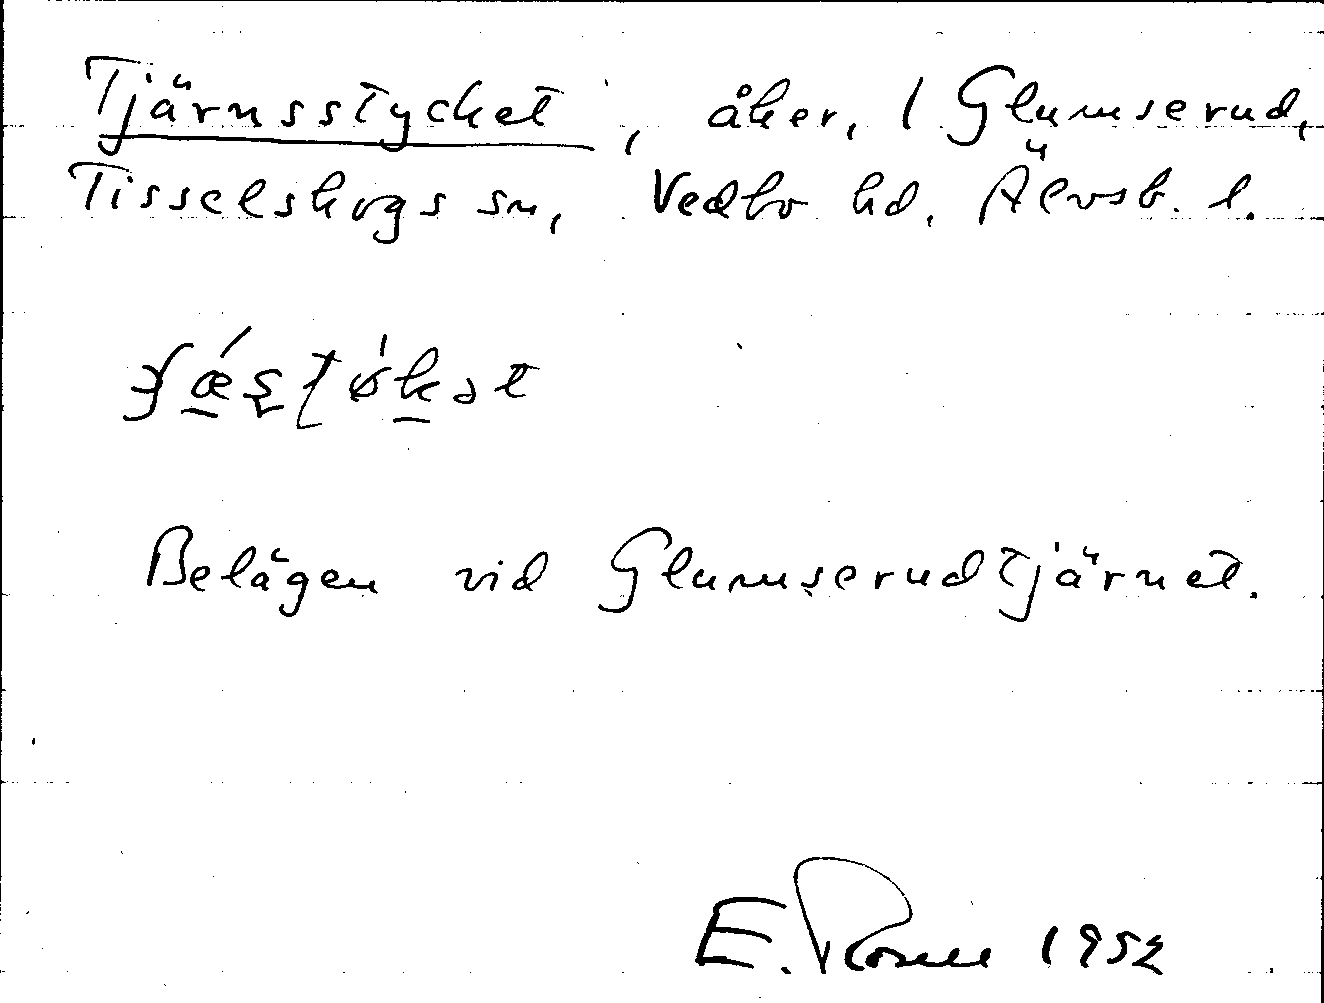 Tjärnsstycket, åker, 1 Glumserud,
Tisselskogs sn, Vedbo hd. Älvsb. l.
Belägen vid Glumserudtjärnet.
E. Rosell 1952